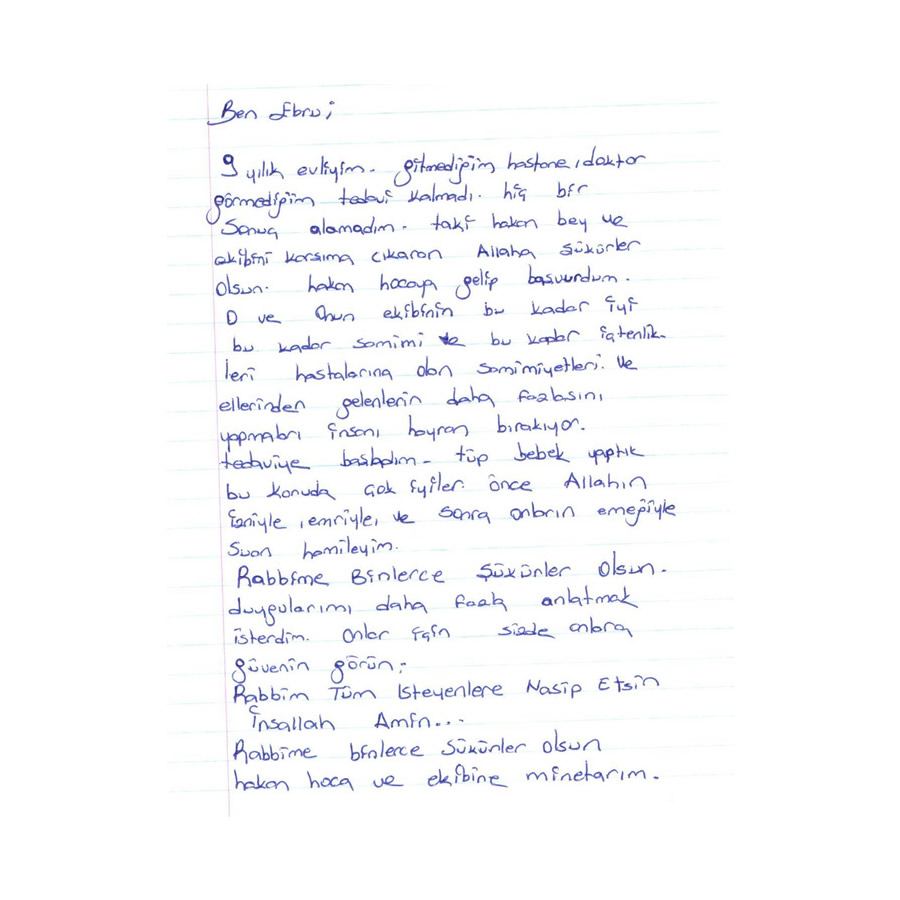 Ben Ebru;
9 yıllık evliyim. gitmediğim hastane, doktor
görmediğim tedavi kalmadı. hiç bir
Sonuç alamadım. taki hakan bey ve
ekibini karsıma cıkaran Allaha şükürler
Olsun. hakan hocaya gelip başvurdum.
O ve Onun ekibinin bu kadar iyi
bu kadar samimi ve bu kadar içtenlik-
leri hastalarına olan samimiyetleri. ve
ellerinden gelenlerin daha fazlasını
yapmaları insanı hayran bırakıyor.
tedaviye başladım. tüp bebek yaptık
bu konuda çok iyiler. önce Allahın
izniyle, emriyle, ve sonra onların emeğiyle
Şuan hamileyim.
Rabbime Binlerce Şükürler Olsun.
duygularımı daha fazla anlatmak
isterdim. Onlar için sizde onlara
güvenin görün.
Rabbim Tüm Isteyenlere Nasip Etsin
İnsallah Amin...
Rabbime binlerce Şükürler olsun
hakan hoca ve ekibine minetarım.